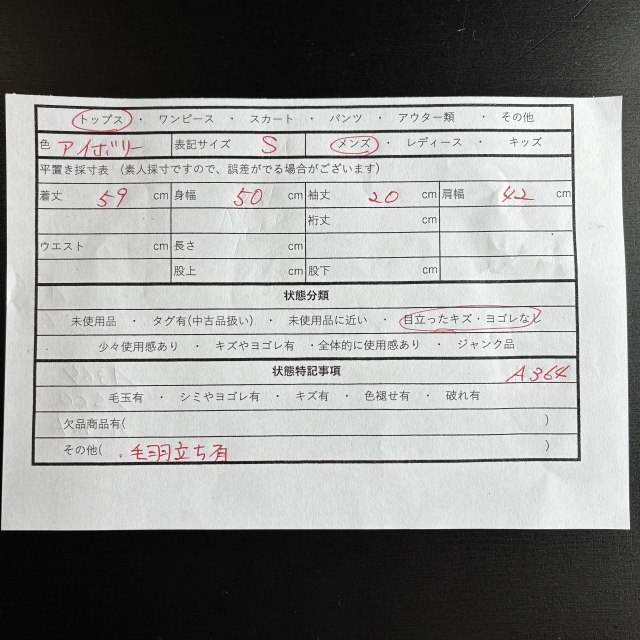 トップス ・ ワンピース ・ スカート ・ パンツ ・ アウター類 ・ その他
色 アイボリー 表記サイズ S メンズ ・ レディース ・ キッズ
平置き採寸表 (素人採寸ですので、誤差がでる場合がございます)
着丈 59 cm 身幅 50 cm 袖丈 20 cm 肩幅 42 cm
裄丈 cm
ウエスト cm 長さ cm
股上 cm 股下 cm
状態分類
未使用品 ・ タグ有(中古品扱い) ・ 未使用品に近い ・ 目立ったキズ・ヨゴレなし
少々使用感あり ・ キズやヨゴレ有 ・全体的に使用感あり ・ ジャンク品
状態特記事項 A364
毛玉有 ・ シミやヨゴレ有 ・ キズ有 ・ 色褪せ有 ・ 破れ有
欠品商品有( )
その他( ・毛羽立ち有 )